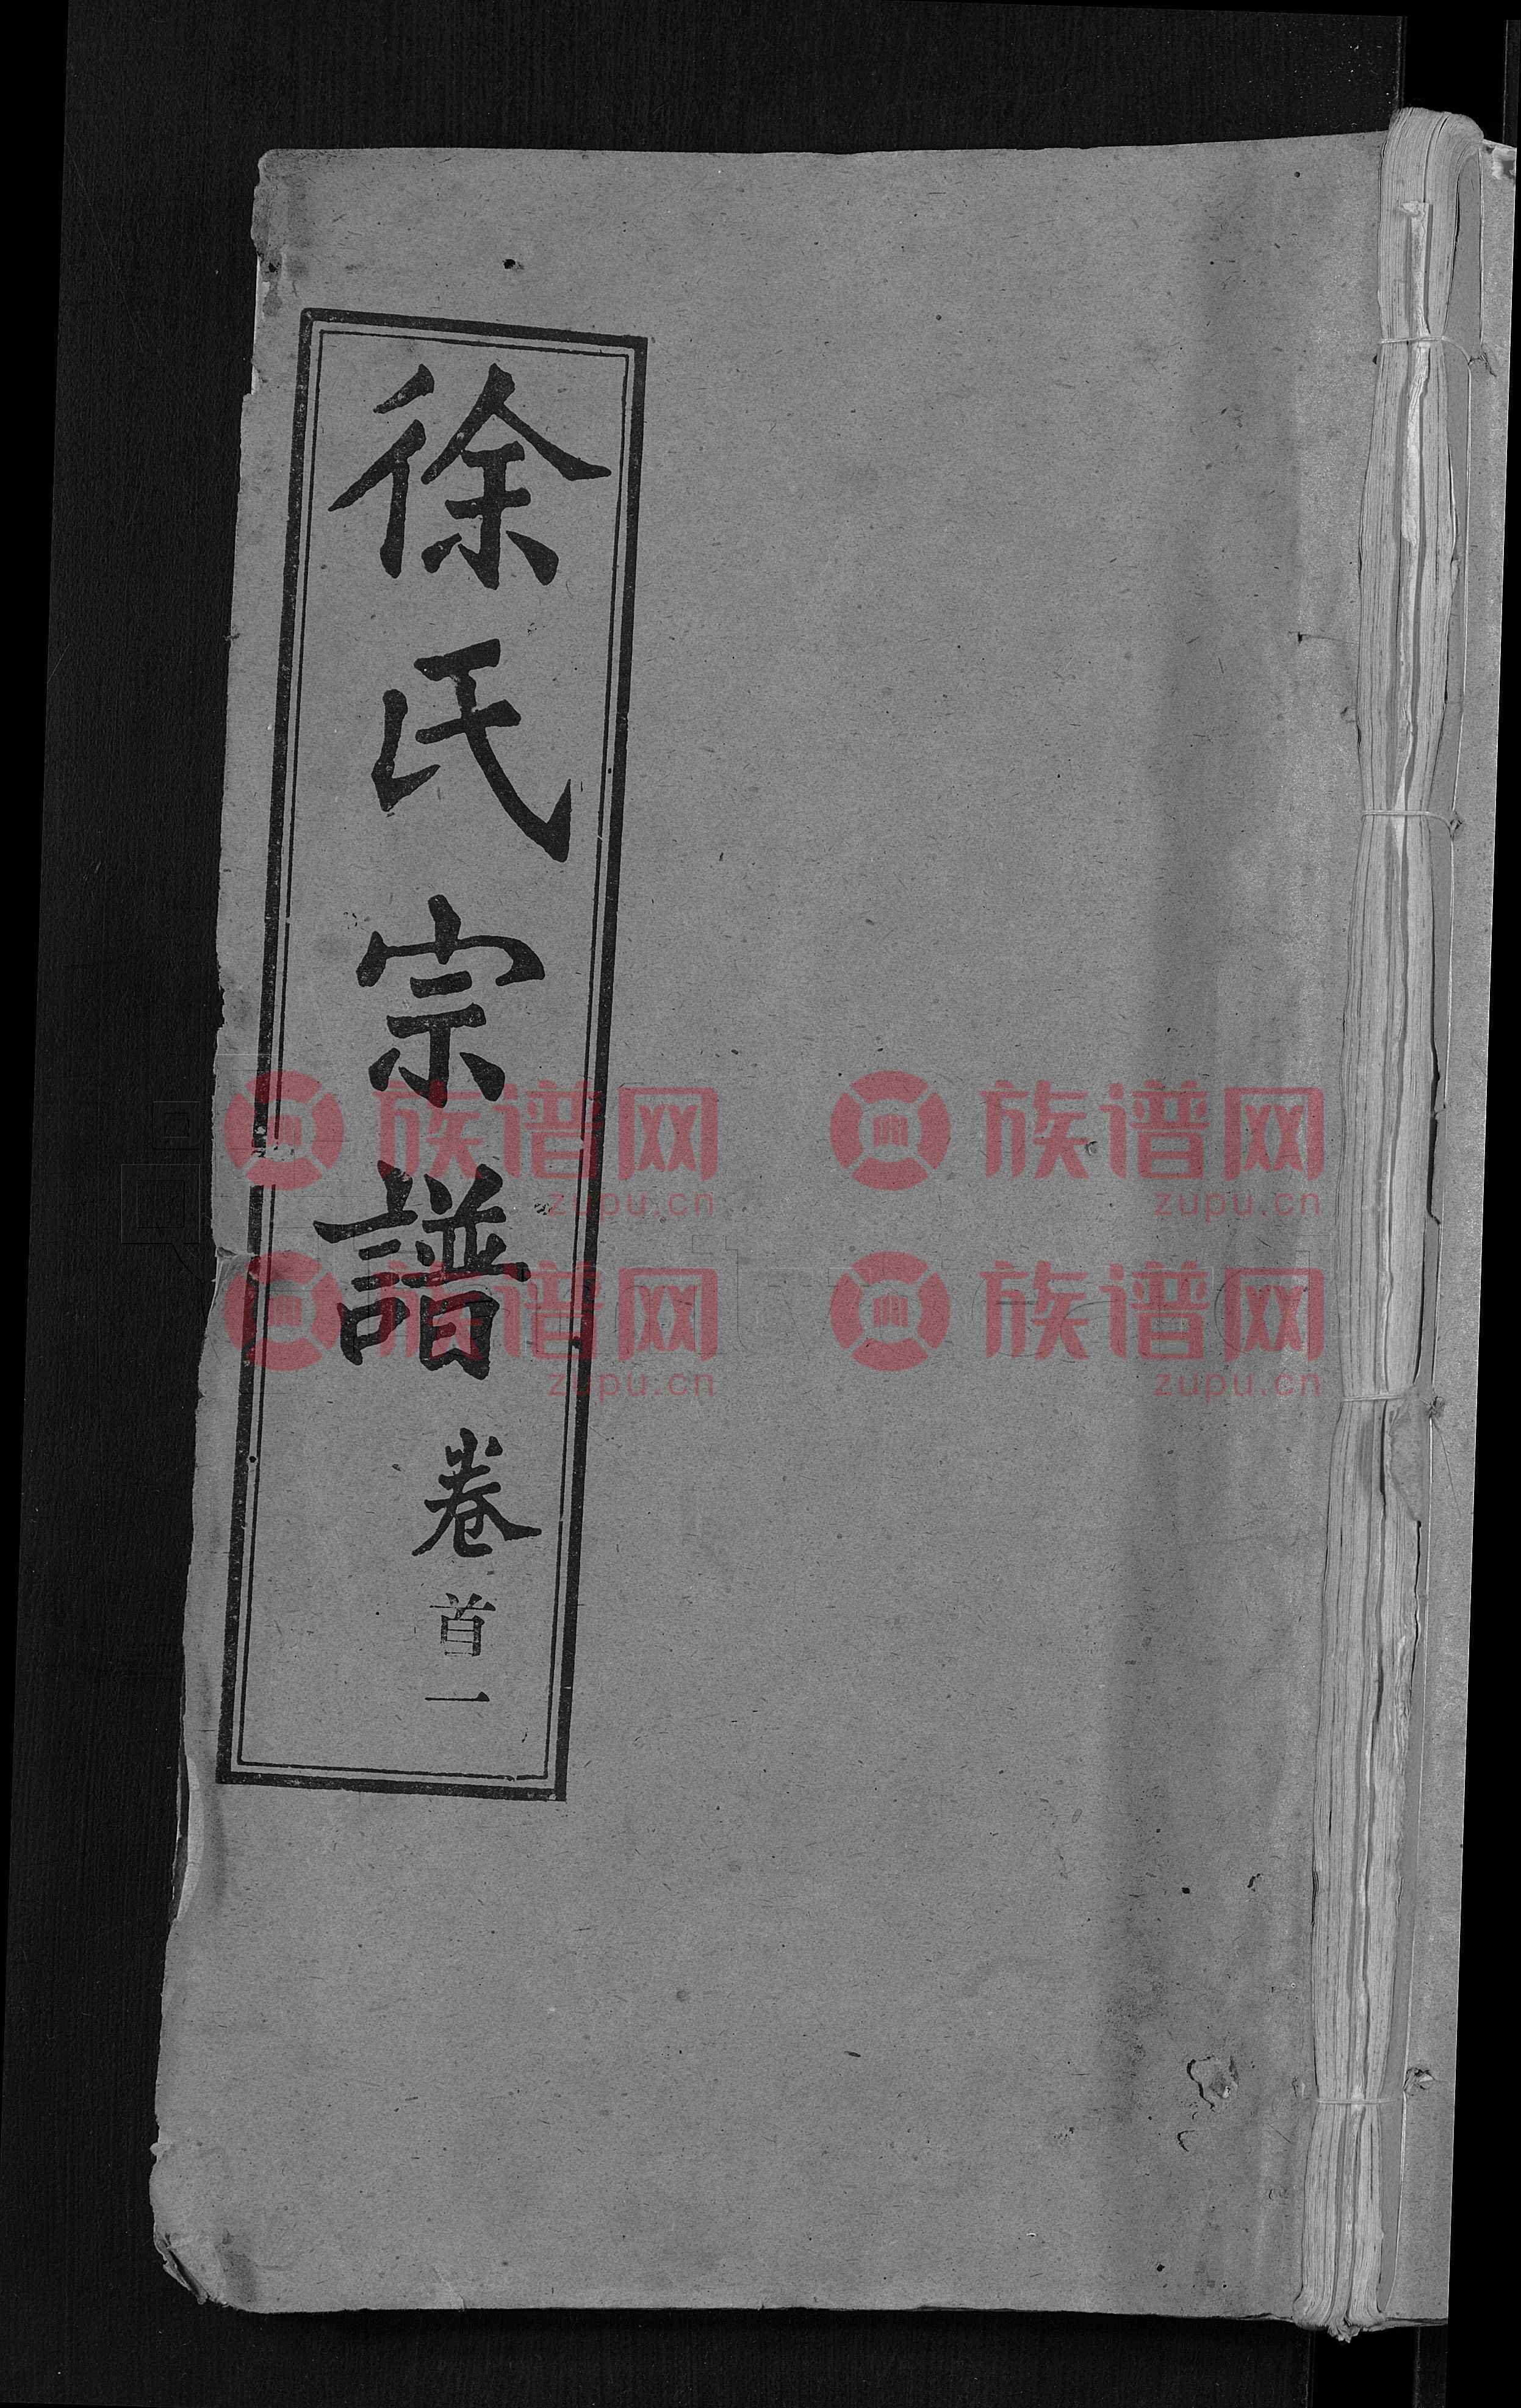 徐氏宗譜 卷首一
族谱网 族谱网
zupu.cn zupu.cn
族谱网 族谱网
zupu.cn zupu.cn